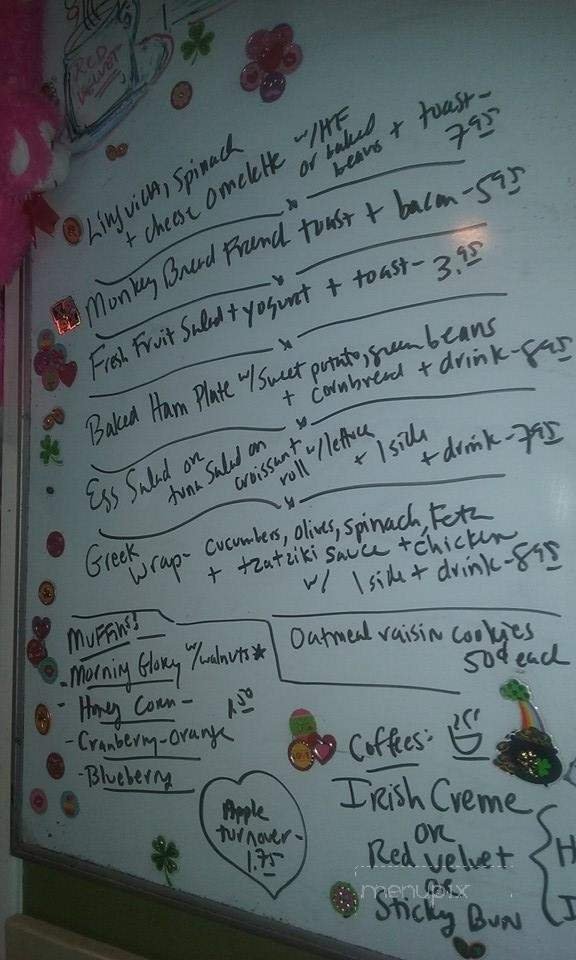 RED
VELVET
Linguica, Spinach
+ cheese Omelette w/HF
or baked
beans + toast-
7.95
Monkey Bread French toast + bacon - 5.95
Fresh Fruit Salad + yogurt + toast - 3.95
Baked Ham Plate w/ Sweet potato, green beans
+ cornbread + drink - 8.95
Egg Salad or
tuna Salad on
croissant
roll w/ lettuce
+ 1 side
+ drink - 7.95
Greek
Wrap - cucumbers, olives, spinach, Feta
+ tzatziki sauce + chicken
w/ 1 side + drink - 8.95
Muffins!
- Morning Glory w/walnuts*
- Honey Corn -
1.50
- Cranberry-Orange
- Blueberry
Oatmeal raisin cookies
50¢ each
Apple
turnover -
1.75
Coffees:
Irish Creme
or
Red Velvet
or
Sticky Bun
H
I
menupix